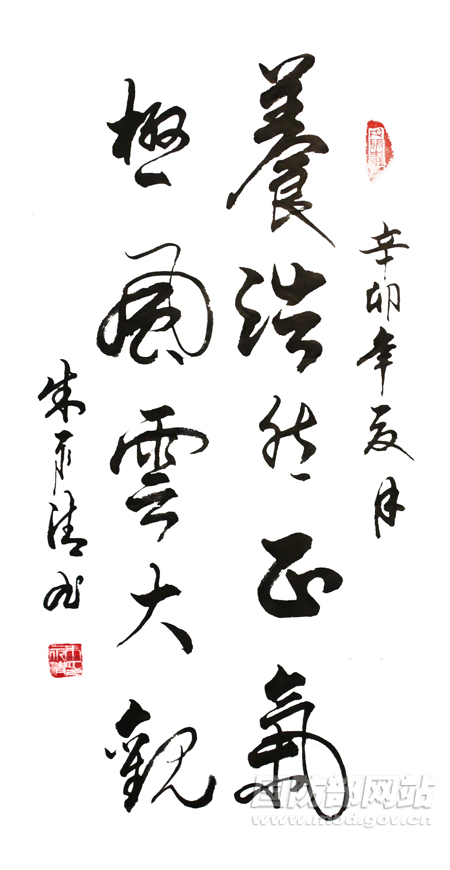 辛卯年夏月
養浩然正氣
極風雲大觀
朱清
国防部网站
www.mod.gov.cn